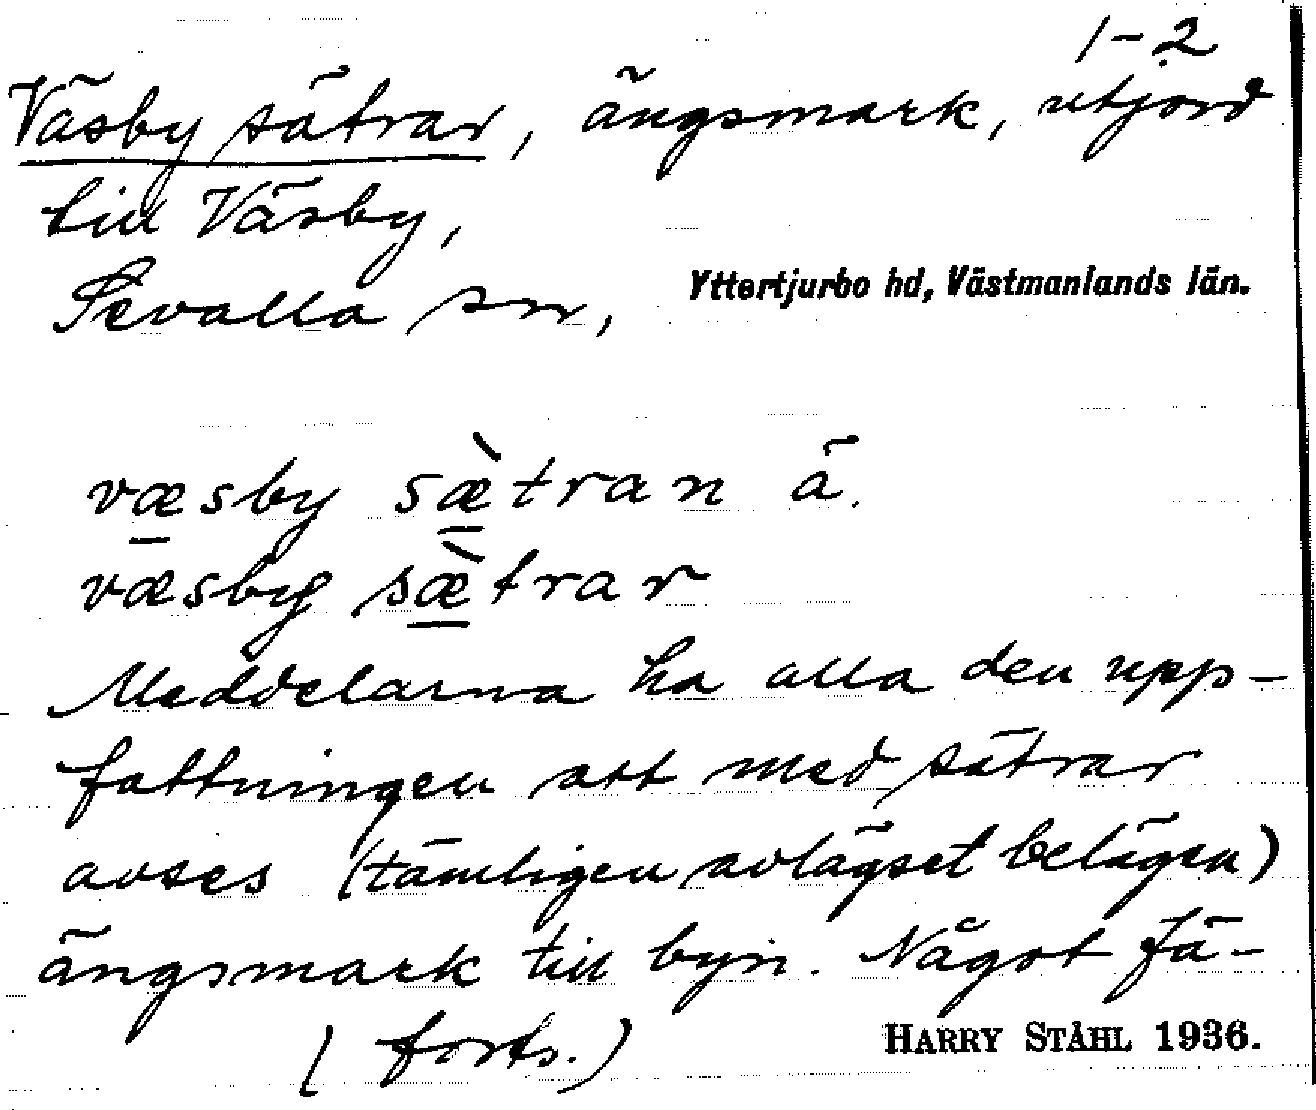 1-2
Väsby sätrar, ängsmark, utjord
till Väsby,
Sevalla sn, Yttertjurbo hd, Västmanlands län.
væsby sæ̀tran ä.
væsby sæ̀trar
Meddelarna ha alla den upp-
fattningen att med sätrar
avses (tämligen avlägset belägen)
ängsmark till byn. Något fä-
(forts.) HARRY STÅHL 1936.